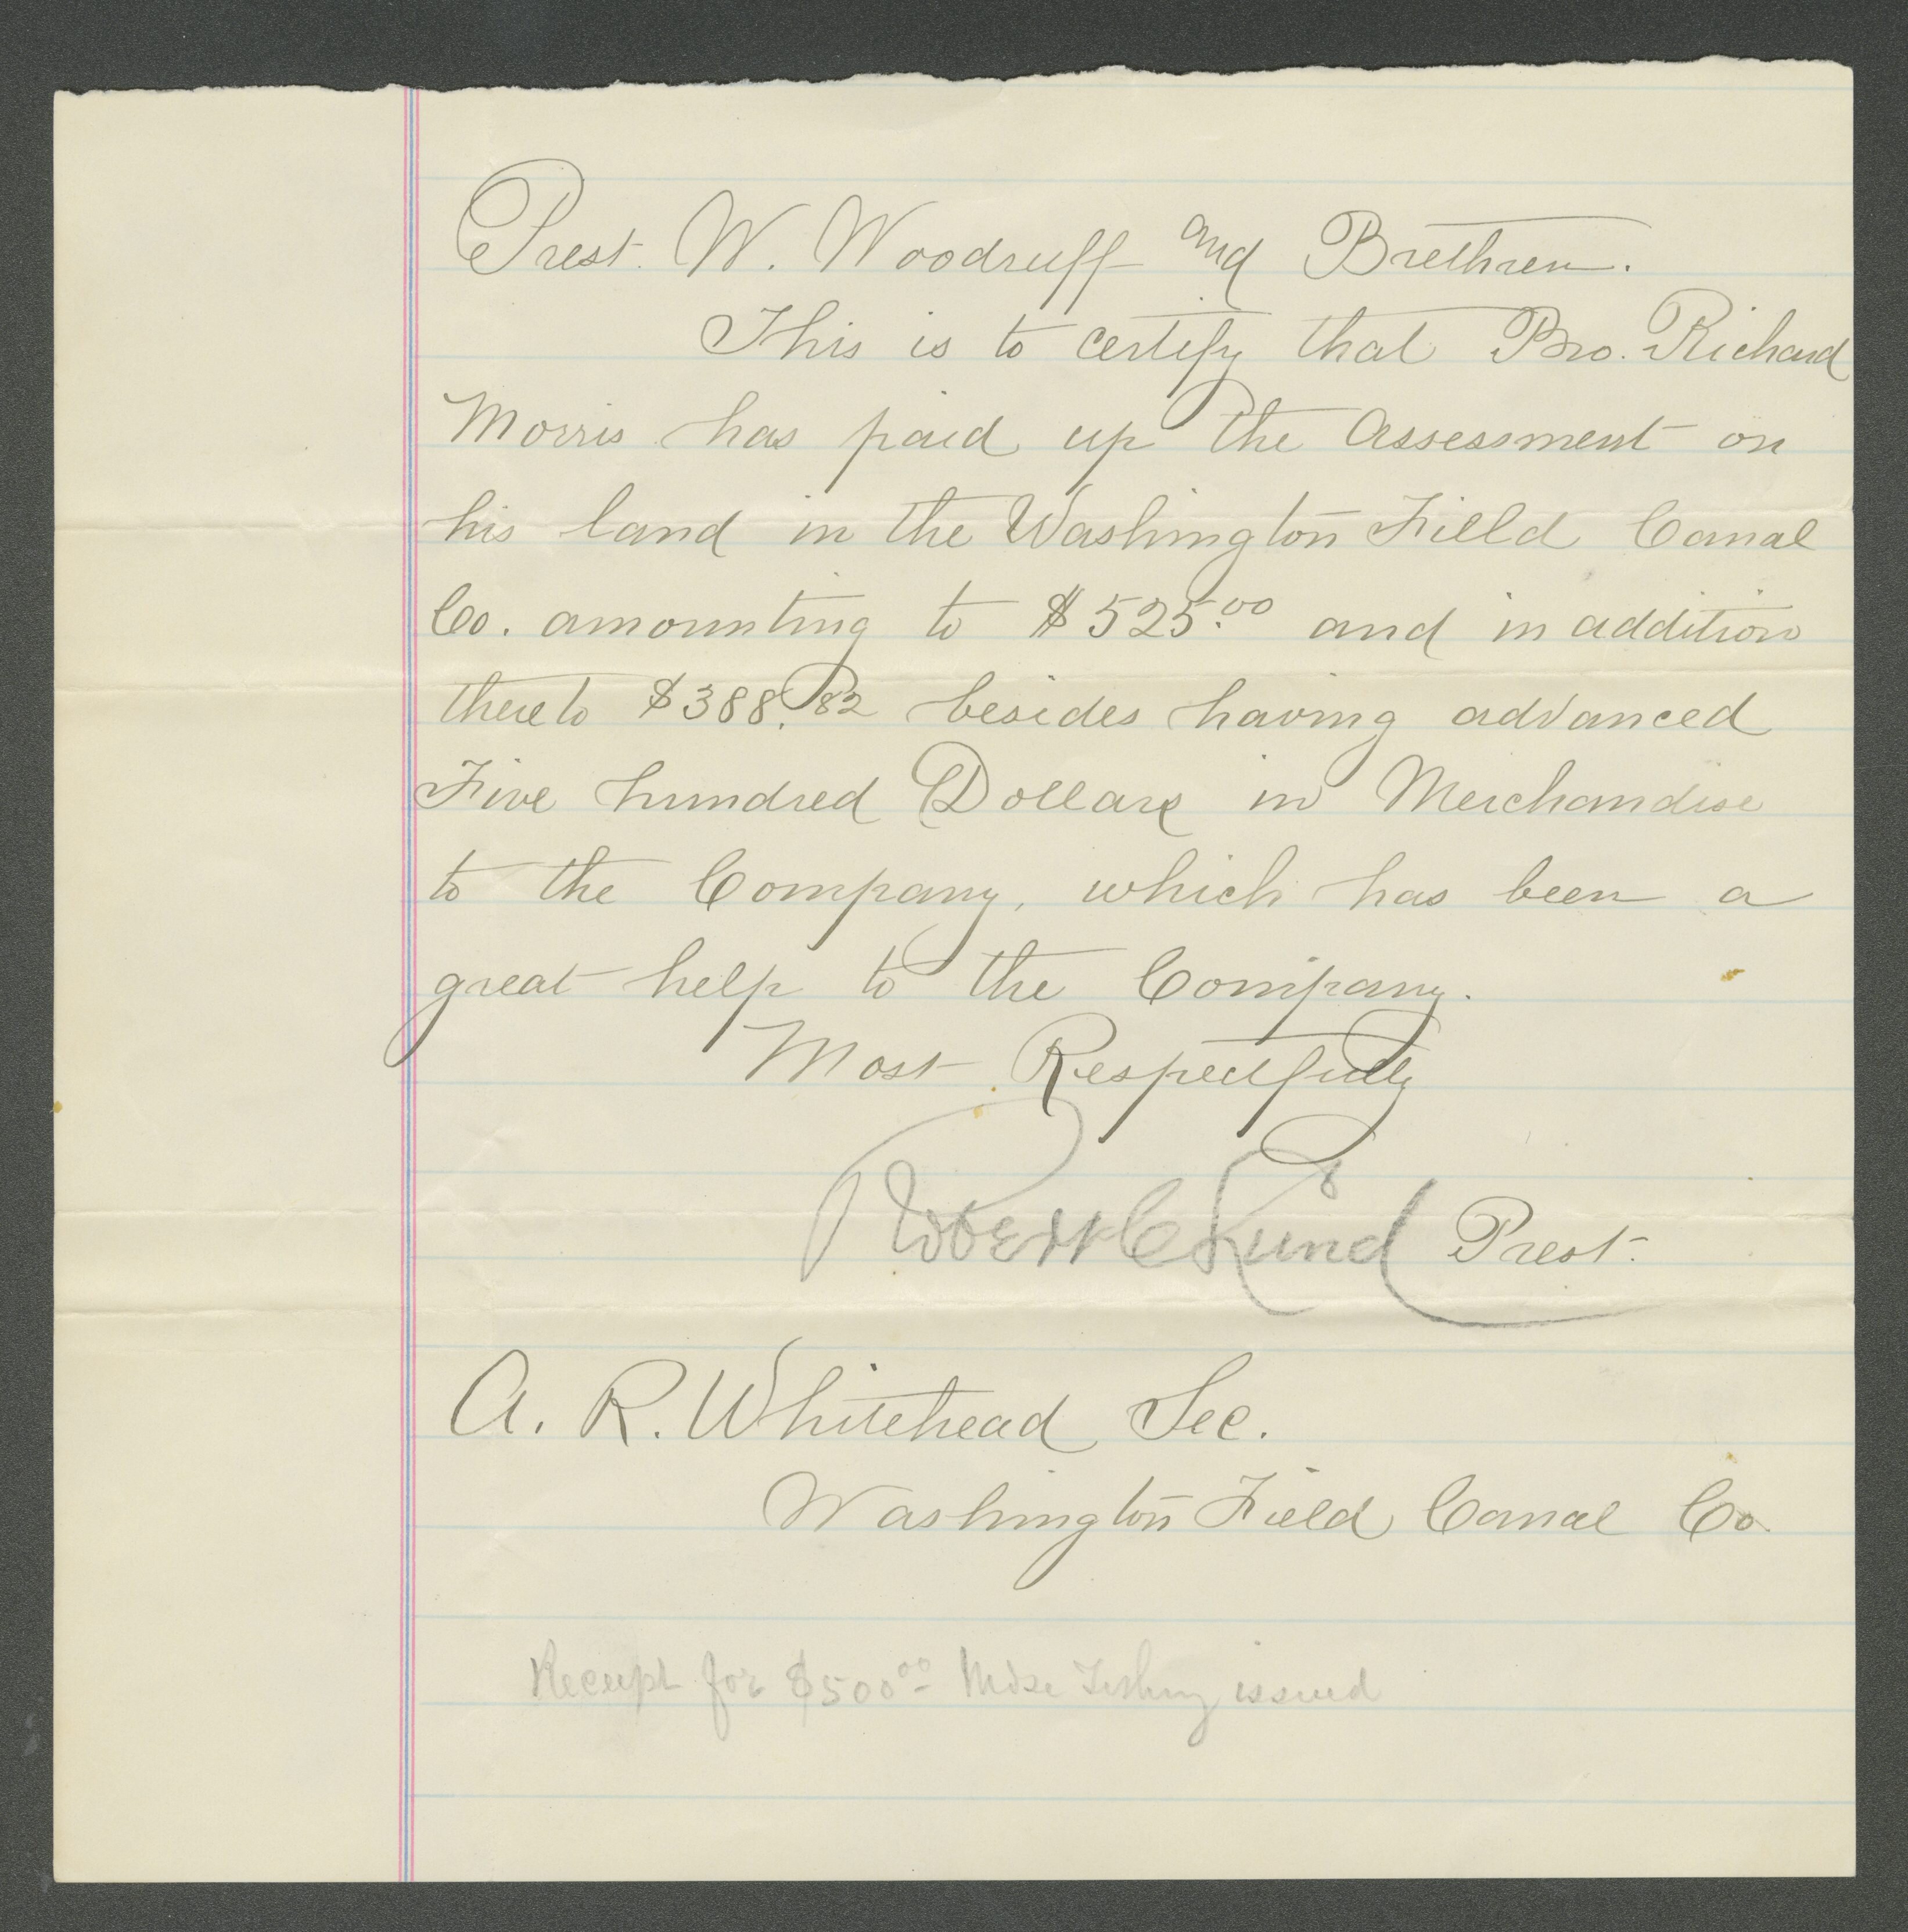 Prest. W. Woodruff and Brethren.
This is to certify that Bro. Richard
Morris has paid up the Assessment on
his land in the Washington Field Canal
Co. amounting to $525.00 and in addition
thereto $388.82 besides having advanced
Five hundred Dollars in Merchandise
to the Company, which has been a
great help to the Company.
Most Respectfully
Robert C Lund Prest.
A. R. Whitehead Sec.
Washington Field Canal Co.
Receipt for $500.00 Mdse issued